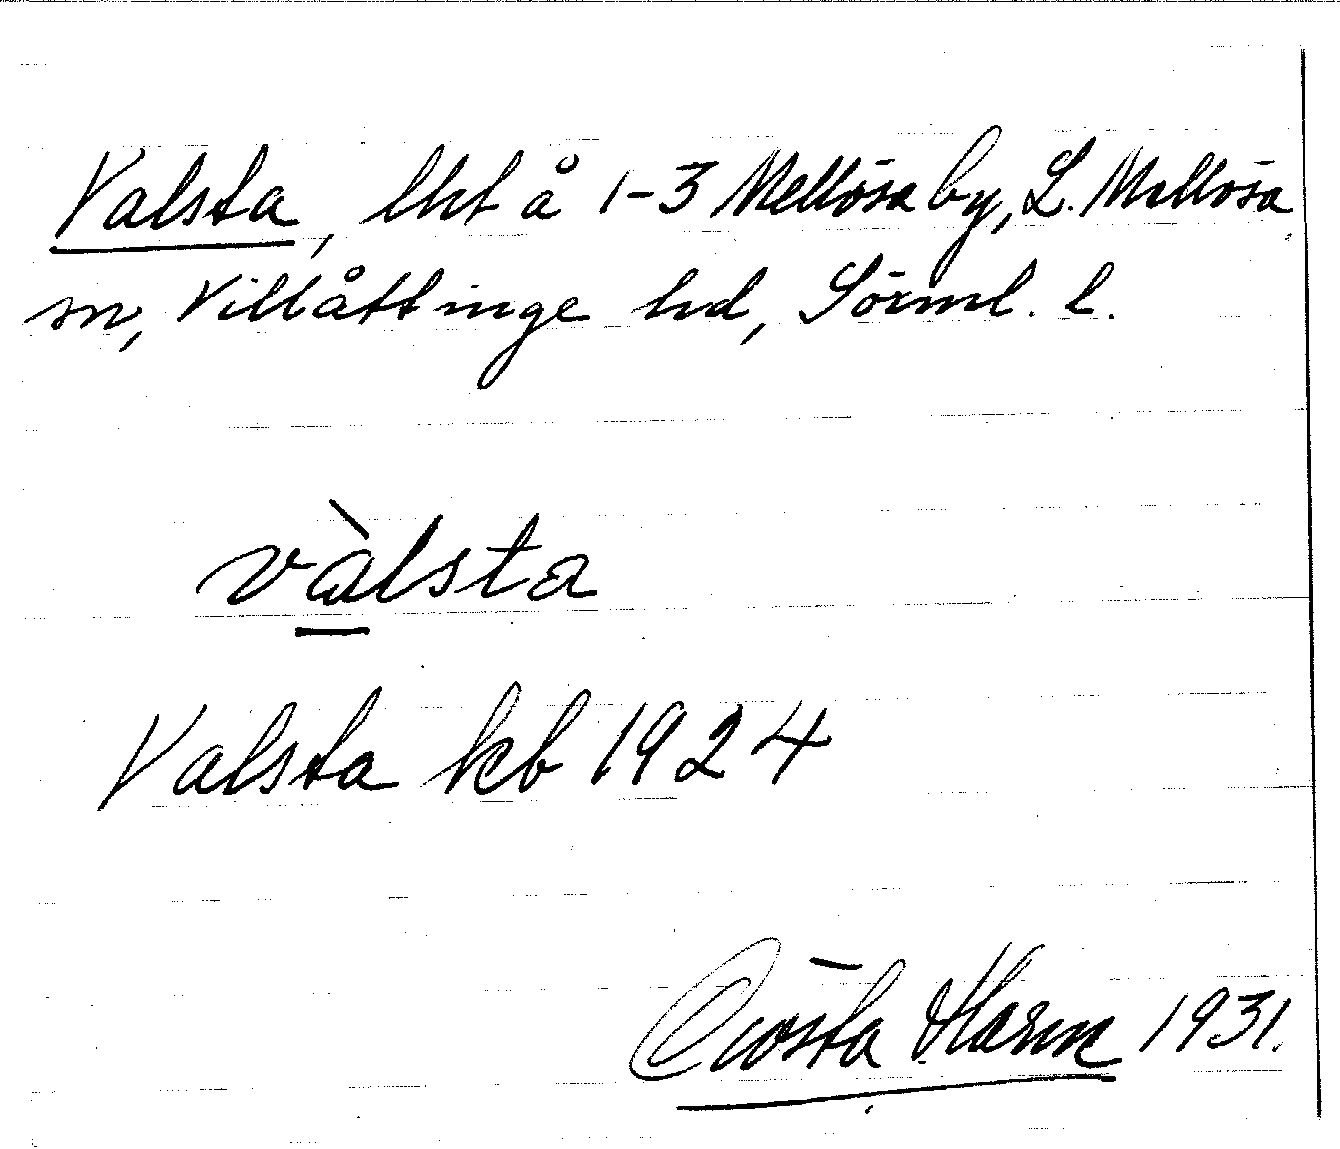 Valsta, lht å 1-3 Mellösa by, L. Mellösa
sn, Villåttinge hd, Sörml. l.
vàlsta
Valsta kb 1924
Gösta 1931.